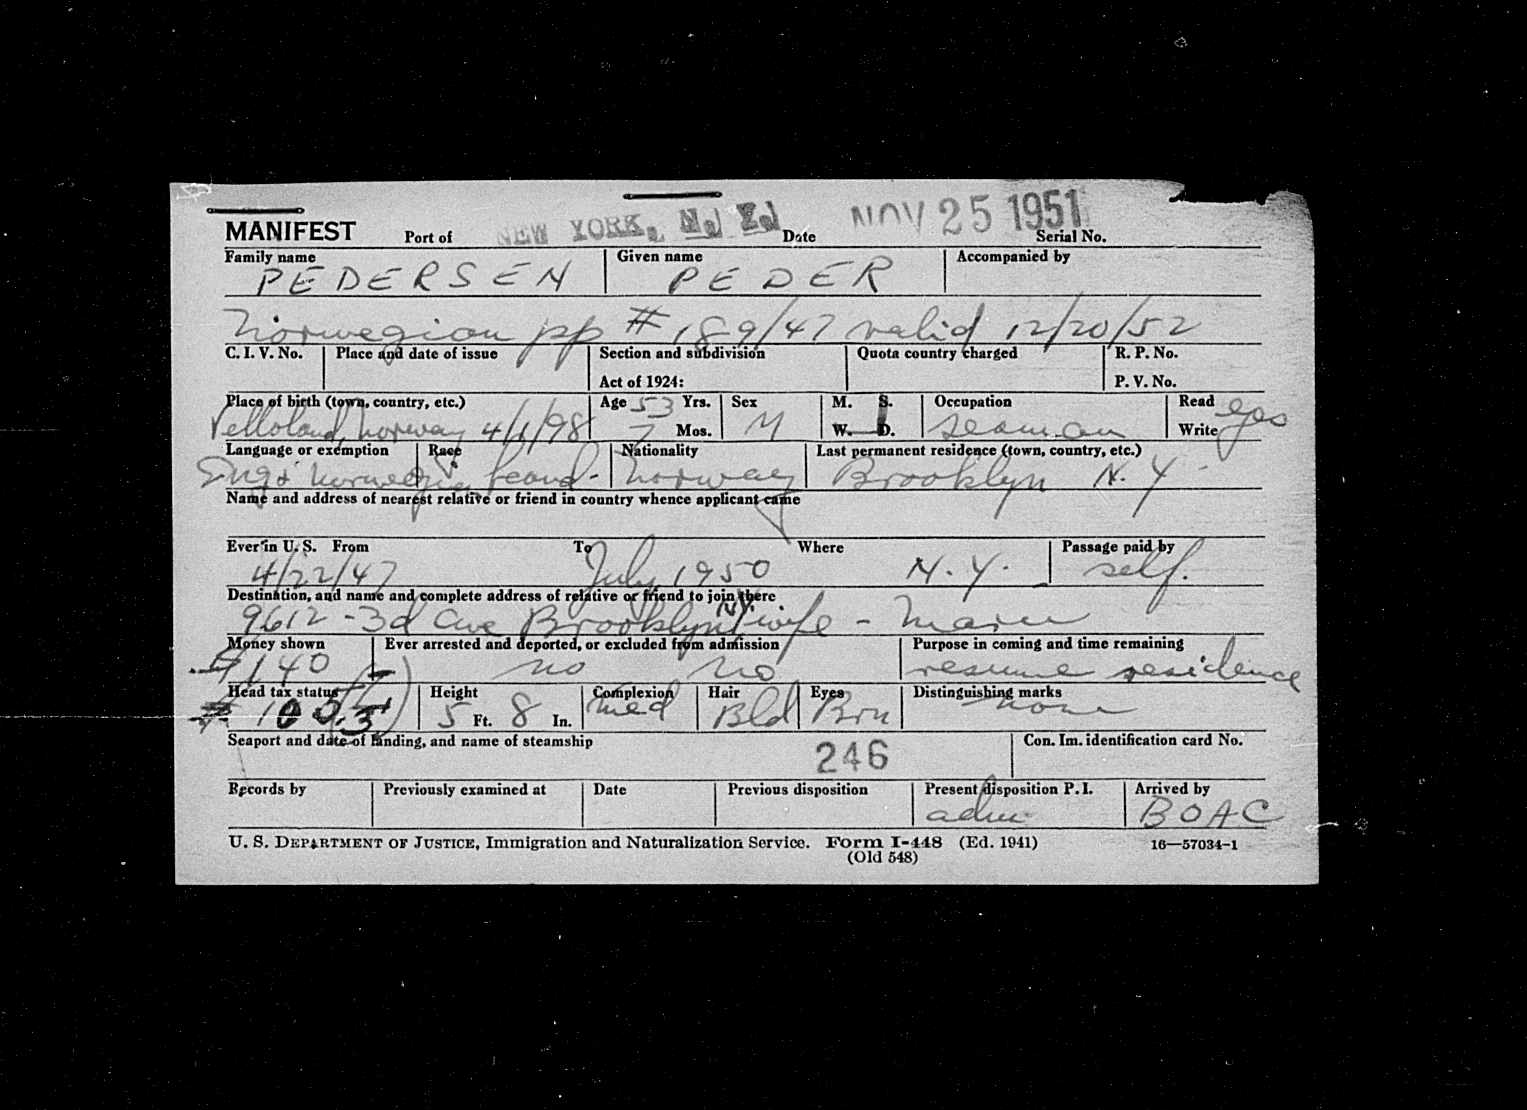 MANIFEST Port of NEW YORK, N. Y. Date NOV 25 1951 Serial No.
Family name PEDERSEN Given name PEDER Accompanied by
Norwegian pp # 189/47 valid 12/20/52
C. I. V. No. Place and date of issue Section and subdivision Quota country charged R. P. No.
Act of 1924: P. V. No.
Place of birth (town, country, etc.) Age 53 Yrs. Sex M. S. Occupation Read yes
Norway 4/1/98 7 Mos. M W. D. seaman Write
Language or exemption Race Nationality Last permanent residence (town, country, etc.)
Eng & Norwegian Scand- Norway Brooklyn N. Y.
Name and address of nearest relative or friend in country whence applicant came
Ever in U. S. From To Where Passage paid by
4/22/47 July 1950 N. Y. self.
Destination, and name and complete address of relative or friend to join there
9612 - 3d Ave Brooklyn NY wife -
Money shown Ever arrested and deported, or excluded from admission Purpose in coming and time remaining
140 no no resume residence
Head tax status Height Complexion Hair Eyes Distinguishing marks
5 Ft. 8 In. Med Bld Brn none
Seaport and date of landing, and name of steamship 246 Con. Im. identification card No.
Records by Previously examined at Date Previous disposition Present disposition P. I. Arrived by
adm BOAC
U. S. DEPARTMENT OF JUSTICE, Immigration and Naturalization Service. Form I-448 (Ed. 1941) 16—57034-1
(Old 548)